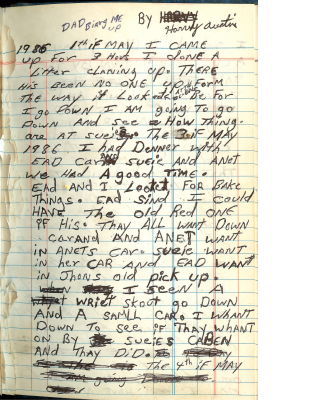 DAD Birry ME UP
BY Harvy austin
1986 1th if MAY I CAME
up FOR 3 Hous I done A
Litter claning up. THERE
His BEEN NO ONE up Form
THE way it Look Be For
I go DOWN I AM going TO go
DOWN AND SEE How Thing.
are AT sueie. The 3 if MAY
1986 I had Denner with
EAD Car AND sueie AND ANET
we HAD A good TIME.
EAd AND I Lookt FOR Bake
Things. EAd Sind I could
HAVE The old Red ONE
if His. THAY ALL WANT DOWN
carand AND ANET WANT
in ANETS Car. sueie WANT
in her CAR AND EAD WANT
in Jhons old pick up.
I seen A
wriet skout go DOWN
AND A SAMLL CAR. I WHANT
DOWN To see if THAY WHANT
ON By sueies CABEN
AND THAY DiD.
The 4th if MAY